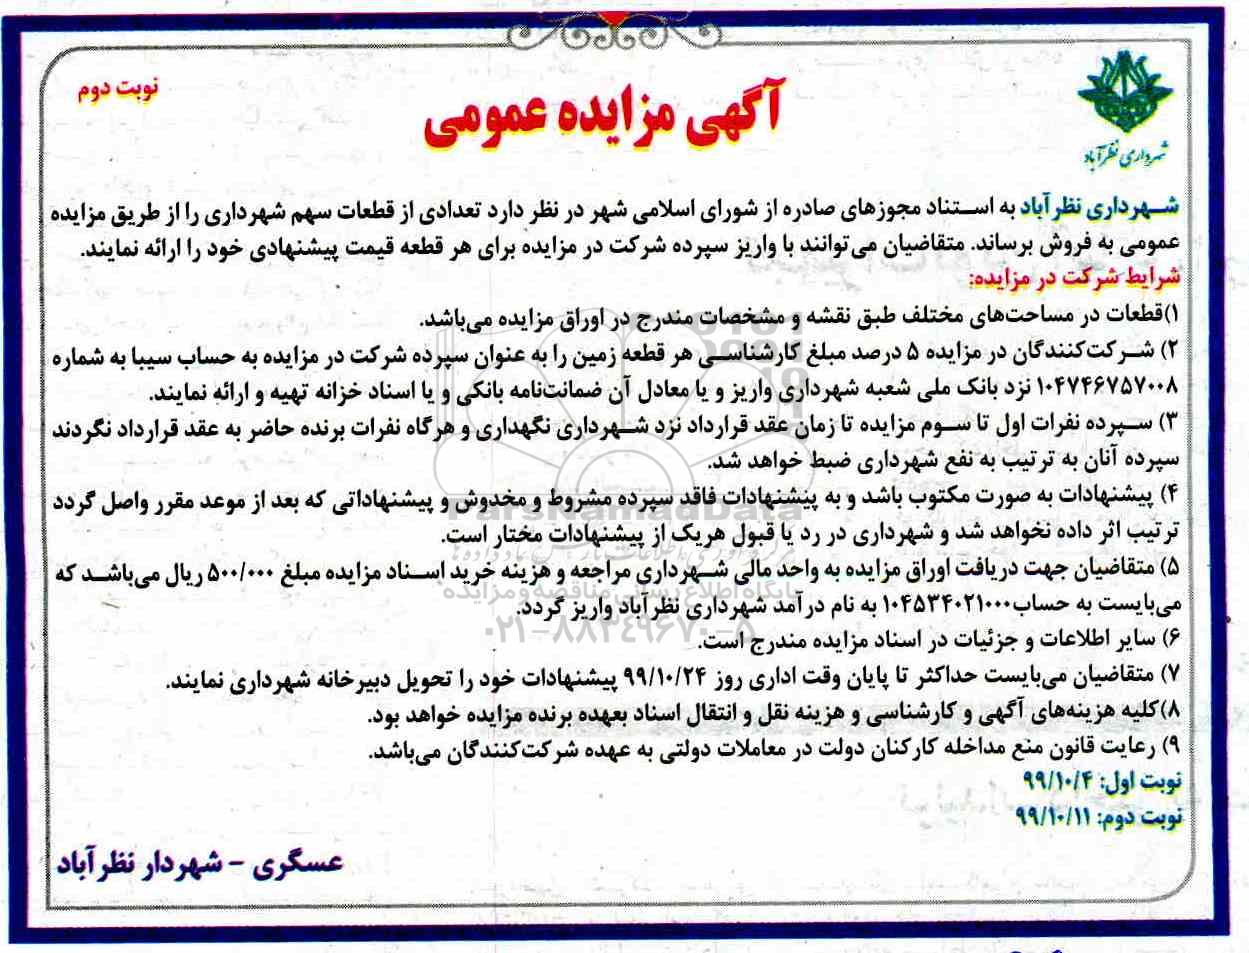 شهرداری نظرآباد
نوبت دوم
آگهی مزایده عمومی
شهرداری نظرآباد به استناد مجوزهای صادره از شورای اسلامی شهر در نظر دارد تعدادی از قطعات سهم شهرداری را از طریق مزایده
عمومی به فروش برساند. متقاضیان می‌توانند با واریز سپرده شرکت در مزایده برای هر قطعه قیمت پیشنهادی خود را ارائه نمایند.
شرایط شرکت در مزایده:
۱)قطعات در مساحت‌های مختلف طبق نقشه و مشخصات مندرج در اوراق مزایده می‌باشد.
۲) شرکت‌کنندگان در مزایده ۵ درصد مبلغ کارشناسی هر قطعه زمین را به عنوان سپرده شرکت در مزایده به حساب سیبا به شماره
۱۰۴۷۴۶۷۵۷۰۰۸ نزد بانک ملی شعبه شهرداری واریز و یا معادل آن ضمانت‌نامه بانکی و یا اسناد خزانه تهیه و ارائه نمایند.
۳) سپرده نفرات اول تا سوم مزایده تا زمان عقد قرارداد نزد شهرداری نگهداری و هرگاه نفرات برنده حاضر به عقد قرارداد نگردند
سپرده آنان به ترتیب به نفع شهرداری ضبط خواهد شد.
۴) پیشنهادات به صورت مکتوب باشد و به پنشنهادات فاقد سپرده مشروط و مخدوش و پیشنهاداتی که بعد از موعد مقرر واصل گردد
ترتیب اثر داده نخواهد شد و شهرداری در رد یا قبول هریک از پیشنهادات مختار است.
۵) متقاضیان جهت دریافت اوراق مزایده به واحد مالی شهرداری مراجعه و هزینه خرید اسناد مزایده مبلغ ۵۰۰/۰۰۰ ریال می‌باشد که
می‌بایست به حساب۱۰۴۵۳۴۰۲۱۰۰۰ به نام درآمد شهرداری نظرآباد واریز گردد.
۶) سایر اطلاعات و جزئیات در اسناد مزایده مندرج است.
۷) متقاضیان می‌بایست حداکثر تا پایان وقت اداری روز ۹۹/۱۰/۲۴ پیشنهادات خود را تحویل دبیرخانه شهرداری نمایند.
۸)کلیه هزینه‌های آگهی و کارشناسی و هزینه نقل و انتقال اسناد بعهده برنده مزایده خواهد بود.
۹) رعایت قانون منع مداخله کارکنان دولت در معاملات دولتی به عهده شرکت‌کنندگان می‌باشد.
نوبت اول: ۹۹/۱۰/۴
نوبت دوم: ۹۹/۱۰/۱۱
عسگری - شهردار نظرآباد
ParsNamadData
پایگاه اطلاع رسانی مناقصه و مزایده
۰۲۱-۸۸۳۴۹۶۷۰-۵